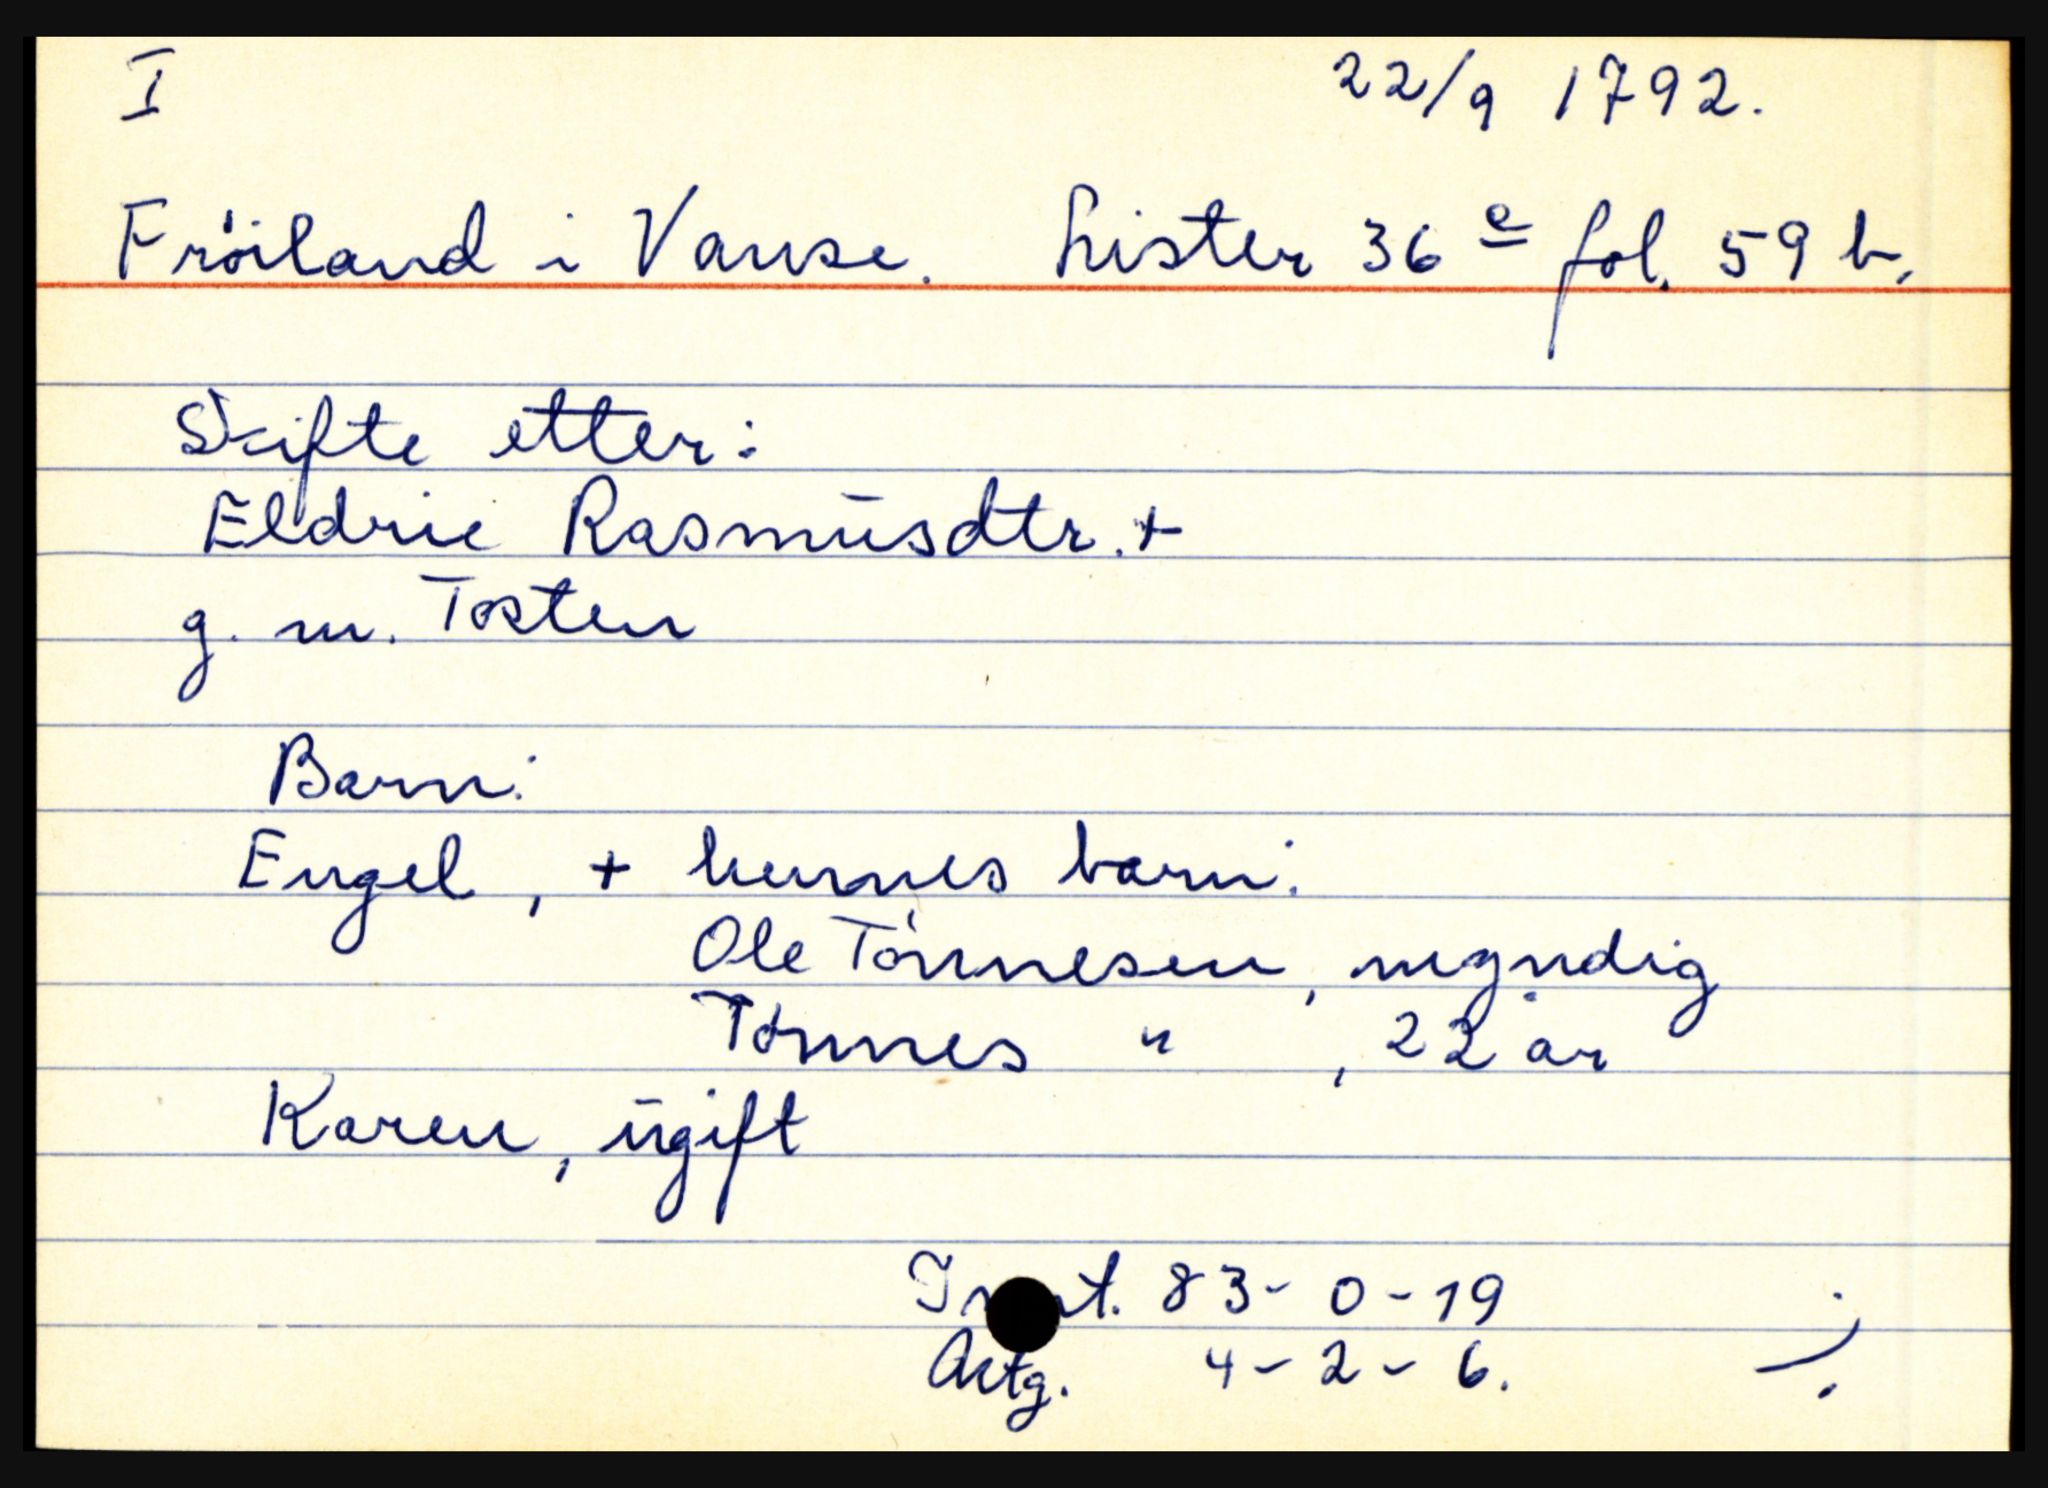 I 22/9 1792.
Fröiland i Vanse. Lister 36 e fol. 59 b.
Skifte etter:
Eldrie Rasmusdtr. +
g. m. Tosten
Barn:
Engel, + hennes barn:
Ole Tønnesen, myndig
Tønnes " , 22 år
Karen, ugift
83 - 0 - 19
Aktg. 4 - 2 - 6.